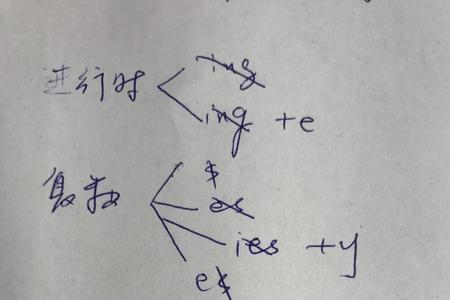 进行时
ing
ing +e
复数
s
es
ies +y
es